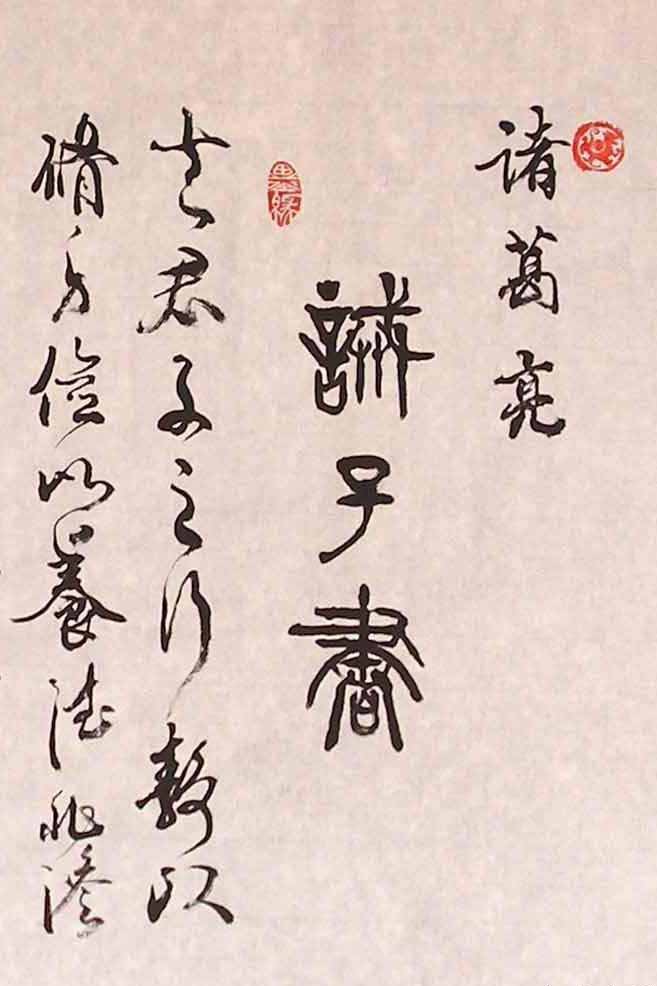 诸葛亮
誡子書
夫君子之行静以
脩身儉以養德非澹